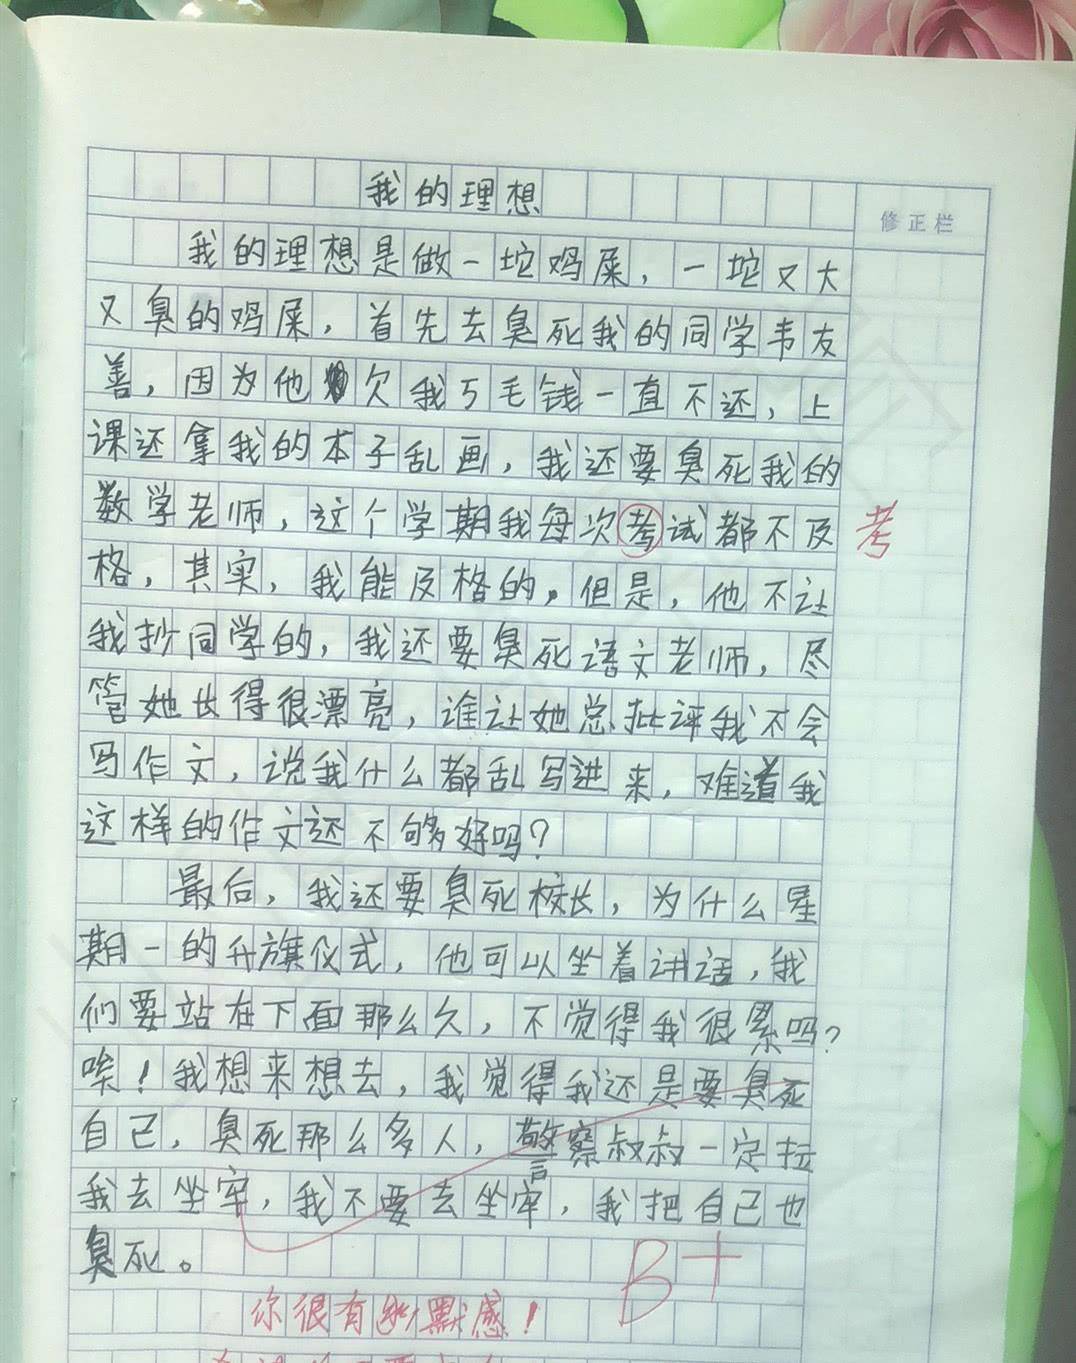 我的理想
修正栏
我的理想是做一坨鸡屎，一坨又大
又臭的鸡屎，首先去臭死我的同学韦友
善，因为他欠我5毛钱一直不还，上
课还拿我的本子乱画，我还要臭死我的
数学老师，这个学期我每次考试都不及
考
格，其实，我能及格的，但是，他不让
我抄同学的，我还要臭死语文老师，尽
管她长得很漂亮，谁让她总批评我不会
写作文，说我什么都乱写进来，难道我
这样的作文还不够好吗？
最后，我还要臭死校长，为什么星
期一的升旗仪式，他可以坐着讲话，我
们要站在下面那么久，不觉得我很累吗？
唉！我想来想去，我觉得我还是要臭死
自己，臭死那么多人，警察叔叔一定拉
我去坐牢，我不要去坐牢，我把自己也
臭死。
B+
你很有幽默感！